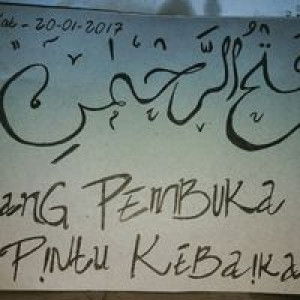 20-01-2017
فتح الرحمن
ang PEMBUKA
PiNtu KEBaika